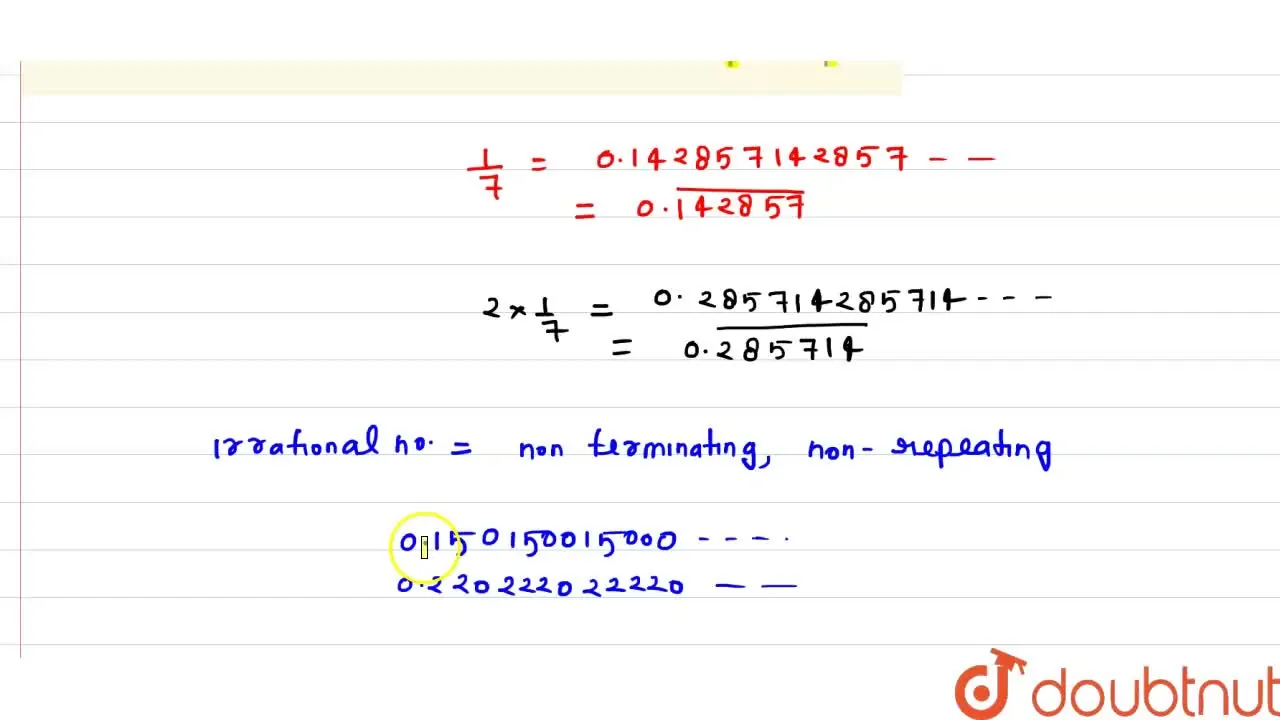 1/7 = 0.142857142857 - -
= 0.1̅4̅2̅8̅5̅7̅
2 × 1/7 = 0.285714285714 - - -
= 0.2̅8̅5̅7̅1̅4̅
irrational no. = non terminating, non-repeating
0.150150015000 - - - -
0.220222022220 - -
doubtnut